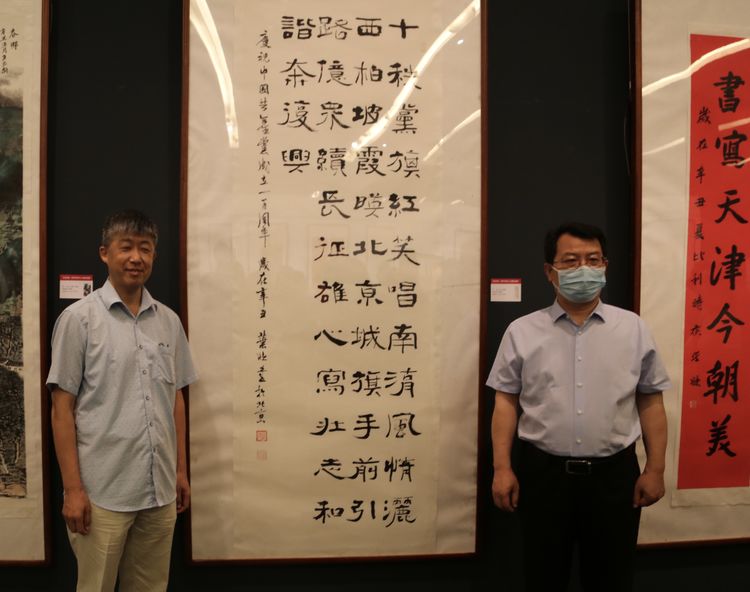 十秩黨旗紅笑唱南湖風情灑
西柏坡霞暎北京城旗手前引
路億衆續長征雄心寫壮志和
諧奔復興
慶祝中国共產黨成立一百周年 歲在辛丑
書寫天津今朝美
歲在辛丑夏比利時